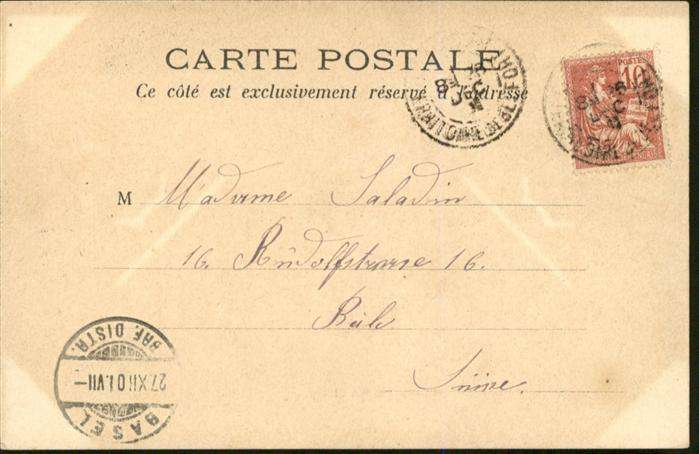 CARTE POSTALE
Ce côté est exclusivement réservé à l'adresse
POSTES
10
M Madame Saladin
16. Rudolfstrasse 16.
Bâle
Suisse.
BASEL
27.XII.01.VII—
BRF. DISTR.